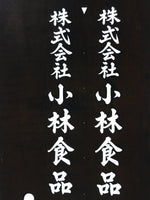 株式会社小林食品
株式会社小林食品